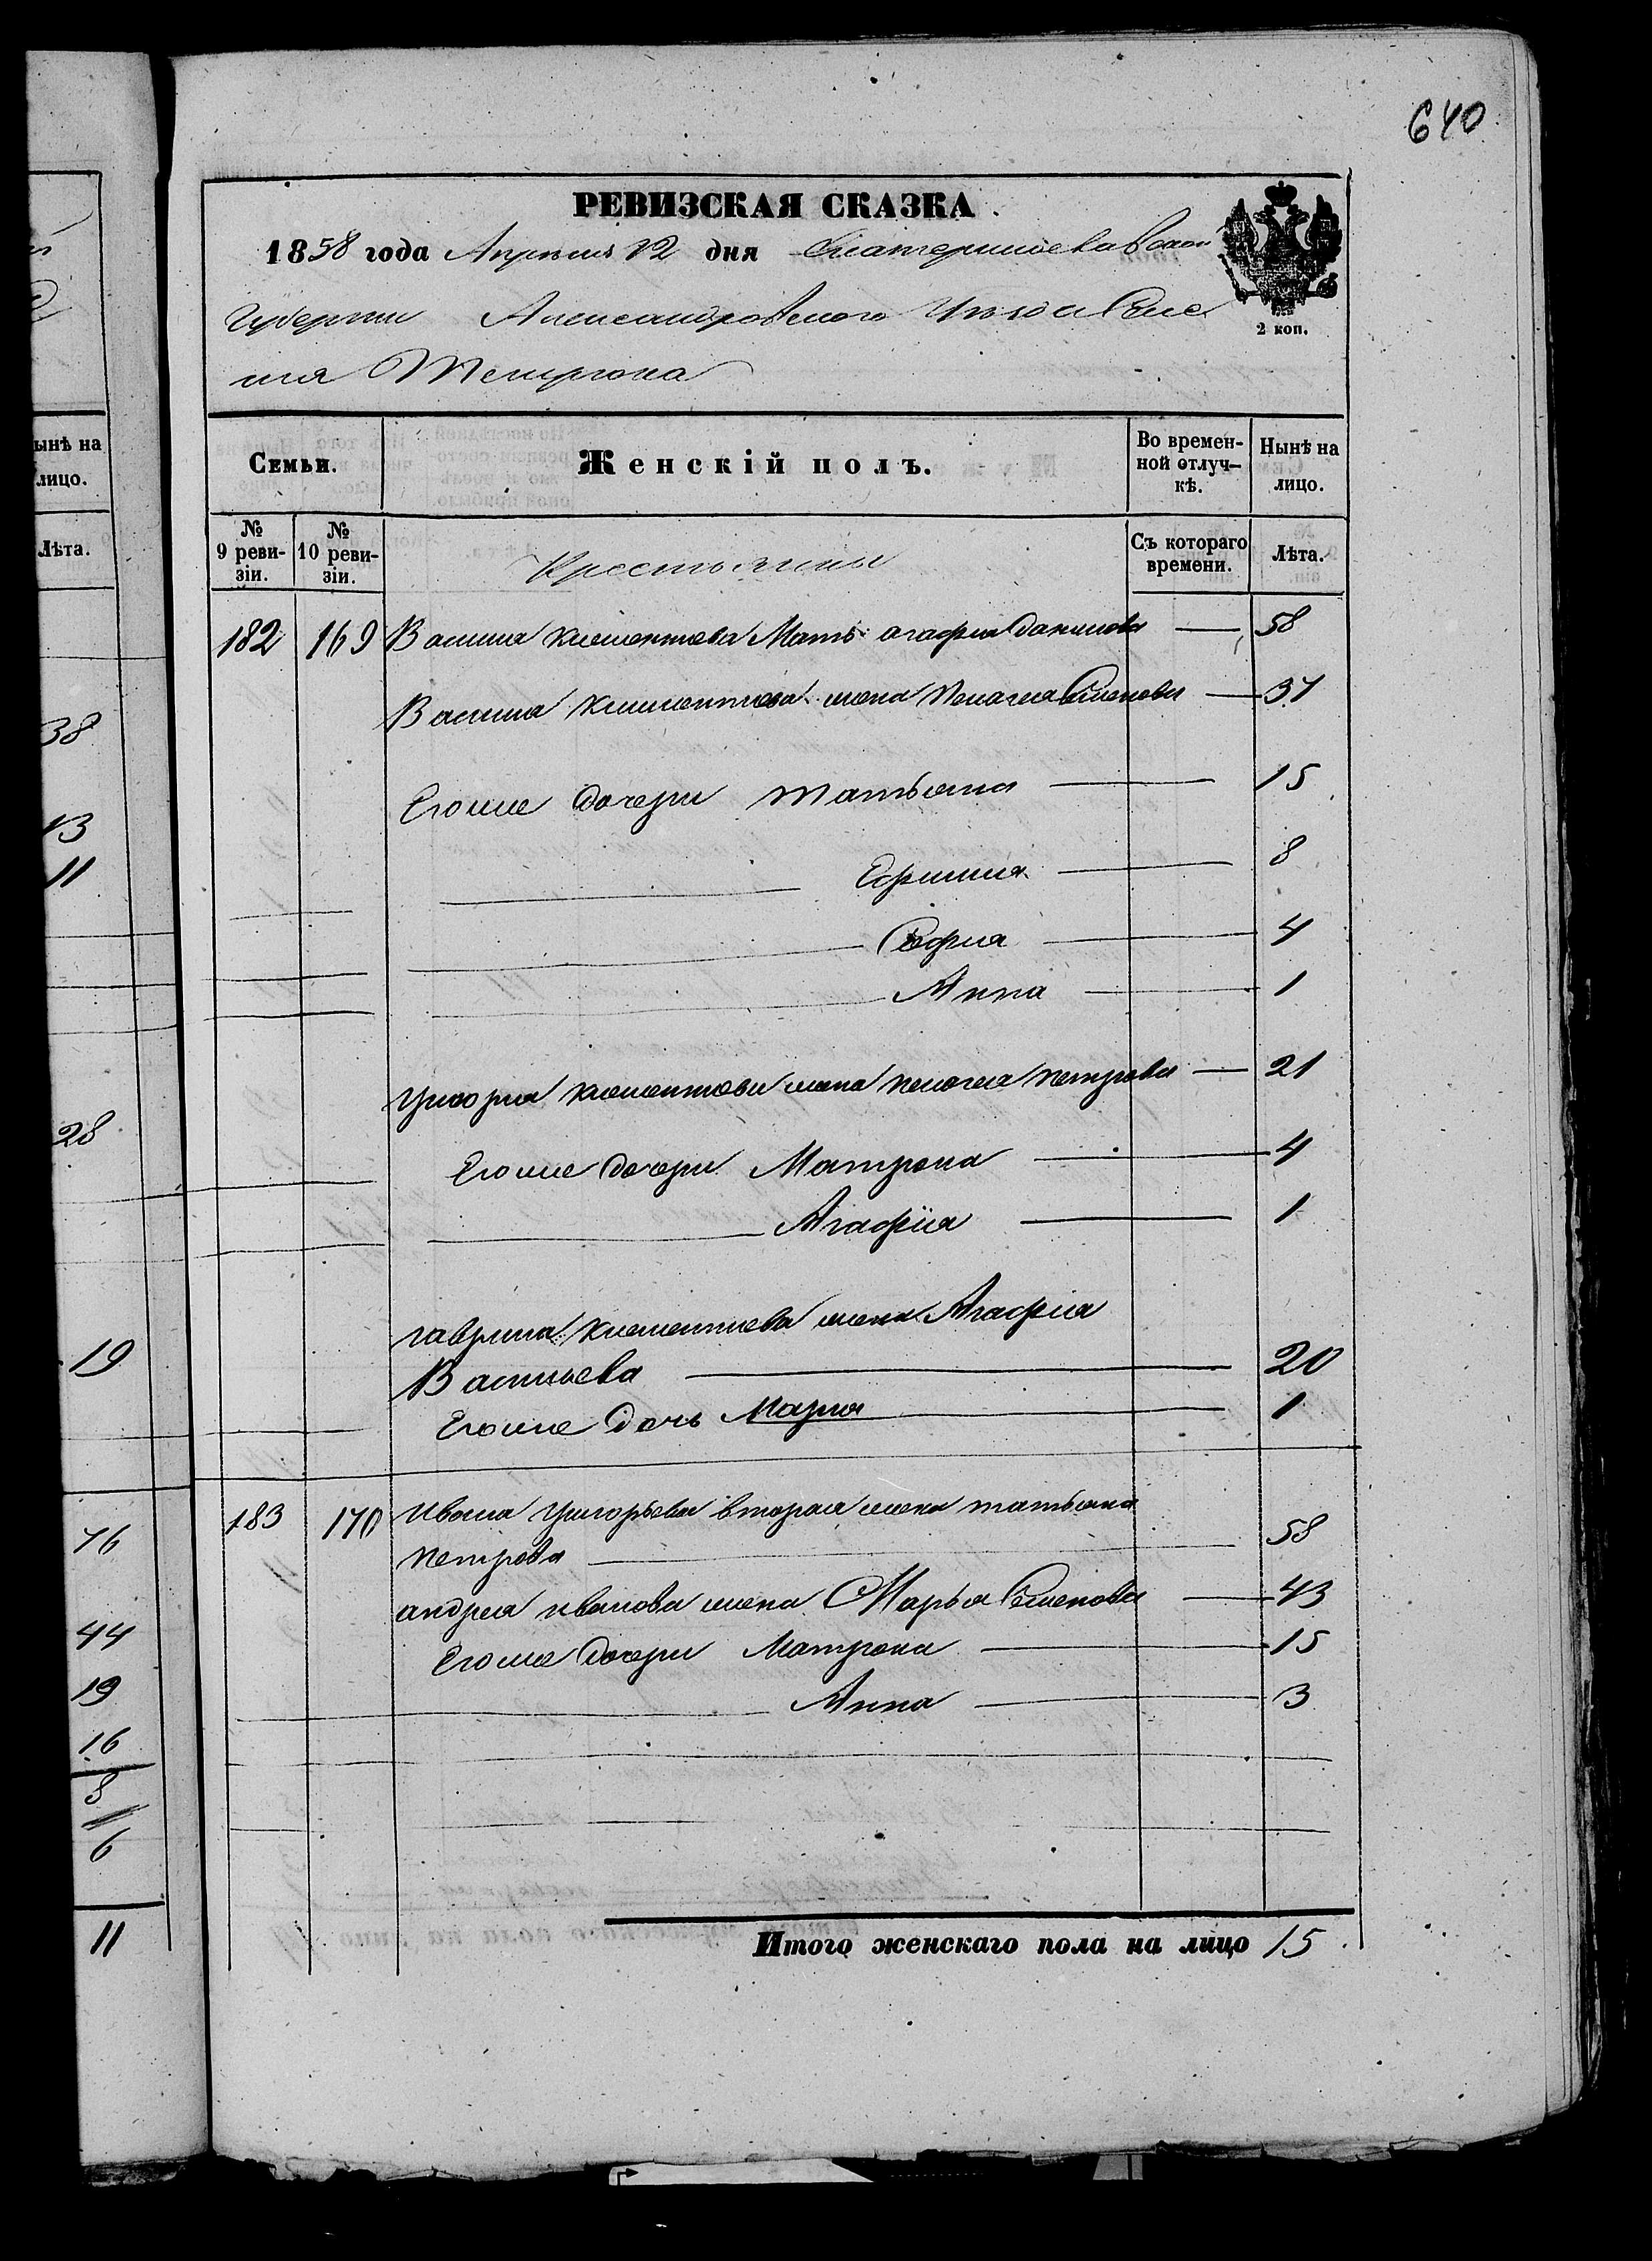 640
РЕВИЗСКАЯ СКАЗКА.
1858 года Апреля 12 дня Екатеринославской
Губернии Александровского Уезда Селе
ния Темрюка
2 коп.
Семьи.
Женскій полъ.
Во времен-
ной отлуч-
кѣ.
Нынѣ на
лицо.
№
9 реви-
зіи.
№
10 реви-
зіи.
Крестьяны
Съ котораго
времени.
Лѣта.
182 169 Василия Клементьева Мать агафия данилова — 58
Василия Клементьева жена Пелагея Семенова — 37
Егоже дочери Татьяна — 15
Ефимия — 8
София — 4
Анна — 1
Григория Клементьева жена пелагея петрова — 21
Егоже дочери Матрона — 4
Агафія — 1
гаврила Клементиева жена Агафия
Васильева — 20
Егоже дочь Мария — 1
183 170 Ивана Григорьева вторая жена татьяна
петрова — 58
андрея иванова жена Марья Семенова — 43
Егоже дочери Матрона — 15
Анна — 3
Итого женскаго пола на лицо 15
ынѣ на
лицо.
Лѣта.
38
13
11
28
19
76
44
19
16
8
6
11